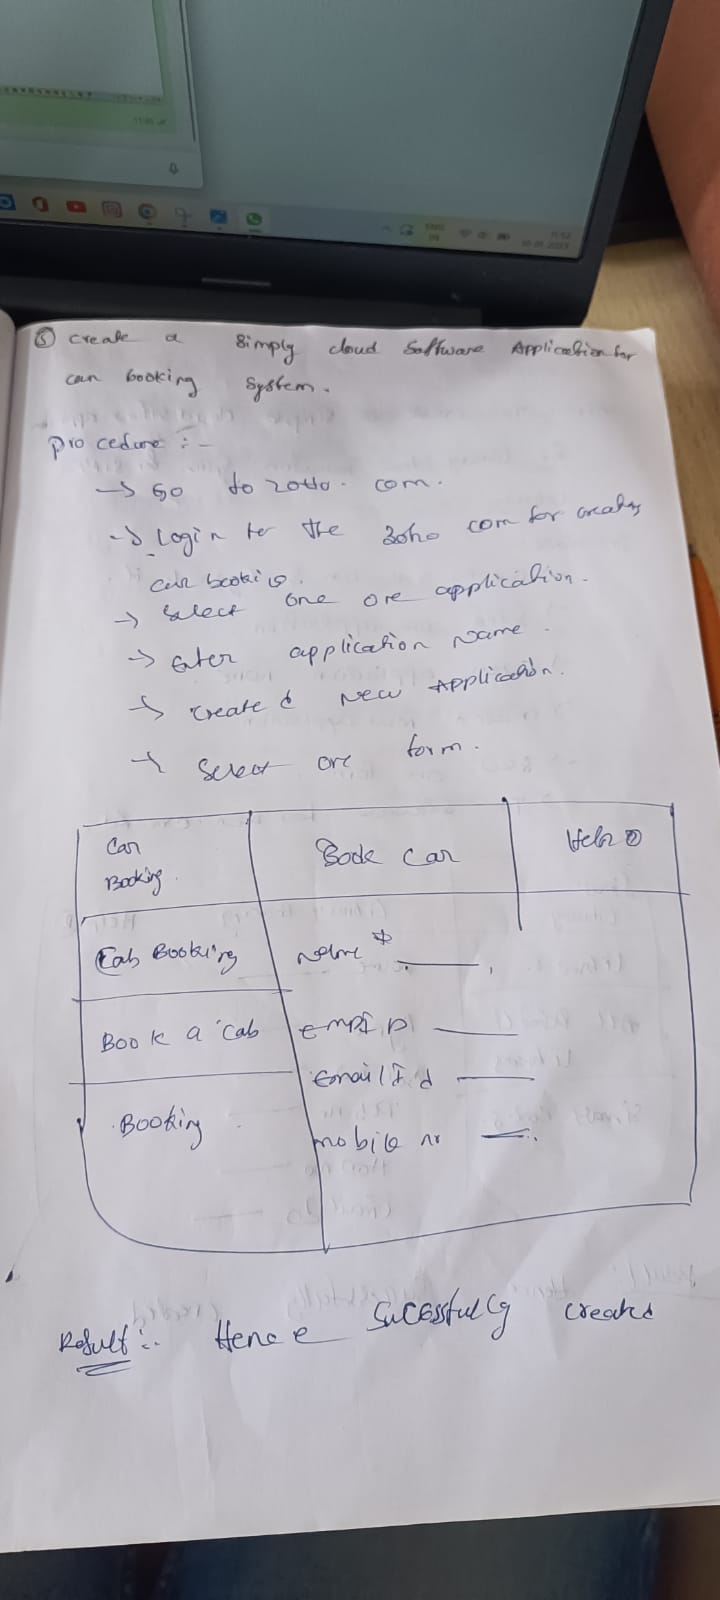 11:52
⑤ Create a Simply cloud Software Application for
can booking System.
Procedure :-
→ Go to zoho. com.
→ Login to the Zoho com for creating
car booking.
→ Select one ore application.
→ Enter application Name.
→ Created New Application.
→ Select ore form.
Car
Booking.
Book Car
Cab Booking
Name * ____.
Book a Cab
EMP I D ____
Email I d ____
Booking
mobile no ____.
Result :- Hence Sucessfully created